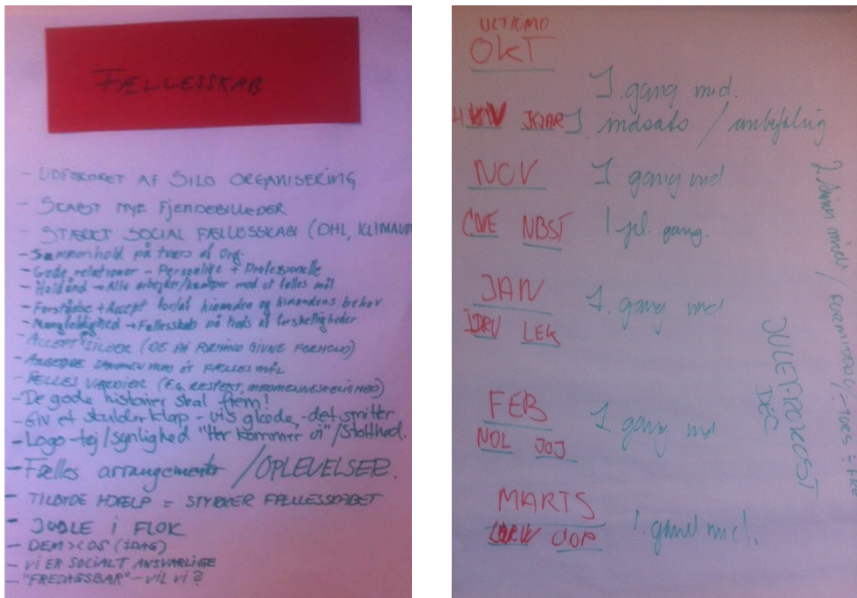 FÆLLESSKAB
- UDFORDRET AF SILO ORGANISERING
- SKABT NYE FJENDEBILLEDER
- STÆRKT SOCIAL FÆLLESSKAB (DHL, KLIMA
- Sammenhold på tværs af org.
- Gode relationer - Personlige + Professionelle
- Holdånd → Alle arbejder/kæmper mod et fælles mål
- Forståelse + Accept for/af hinanden og hinandens behov
- Mangfoldighed → Fællesskab på trods af forskelligheder
- ACCEPT SILOER (DE PÅ FORHÅND GIVNE FORHOLD)
- ARBEJDE SAMMEN MOD ET FÆLLES MÅL
- FÆLLES VÆRDIER (F.EG. RESPEKT, MEDMENNESKELIGHED)
- De gode historier skal frem!
- Giv et skulderklap - vis glæde, - det smitter
- Logo-tøj/synlighed "Her kommer vi"/Stolthed.
- Fælles arrangementer /OPLEVELSER.
- TILBYDE HJÆLP = STYRKER FÆLLESSKABET
- JUBLE I FLOK
- DEM > < OS (IDAG)
- VI ER SOCIALT ANSVARLIGE
- "FREDAGSBAR" - VIL VI?
ULTIMO
OKT
1. gang md.
1. indsats / anbefaling
NOV
1 gang md
NBST 1 pl. gang.
JAN
1. gang md
LEK
FEB
1 gang md
NOL JOJ
MARTS
1. gang md.
JULEFROKOST
DEC